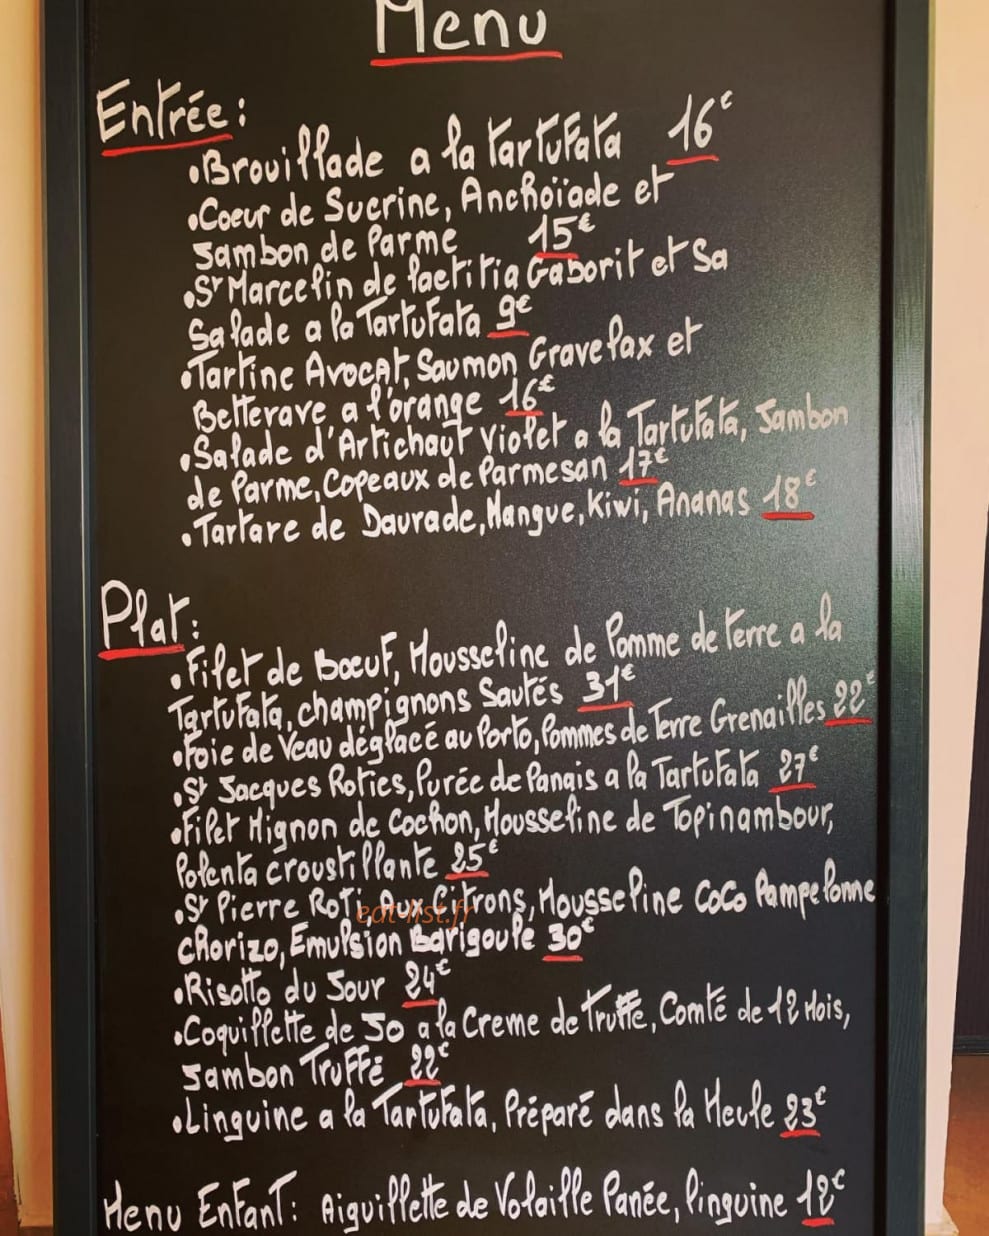 Menu
Entrée :
•Brouillade a la tartufata 16€
•Coeur de Sucrine, Anchoïade et
Jambon de Parme 15€
•St Marcelin de Laetitia Gaborit et Sa
Salade a la Tartufata 9€
•Tartine Avocat, Saumon Gravelax et
Betterave a l'orange 16€
•Salade d'Artichaut violet a la Tartufata, Jambon
de Parme, Copeaux de Parmesan 17€
•Tartare de Daurade, Mangue, Kiwi, Ananas 18€
Plat :
•Filet de Bœuf, Mousseline de Pomme de terre a la
Tartufata, champignons Sautés 31€
•Foie de Veau déglacé au Porto, Pommes de Terre Grenailles 22€
•St Jacques Roties, Purée de Panais a la Tartufata 27€
•Filet Mignon de Cochon, Mousseline de Topinambour,
Polenta croustillante 25€
•St Pierre Roti Aux Citrons, Mousseline Coco Pampelonne
eat-list.fr
chorizo, Emulsion Barigoule 30€
•Risotto du Jour 24€
•Coquillette de Jo a la Creme de Truffe, Comté de 12 Mois,
Jambon Truffé 22€
•Linguine a la Tartufata, Préparé dans la Meule 23€
Menu Enfant : Aiguillette de Volaille Panée, linguine 12€